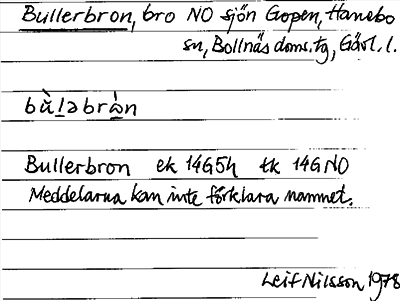 Bullerbron, bro NO sjön Gopen, Hanebo
sn, Bollnäs doms.tg, Gävl. l.
bù̀ləbrὼn
Bullerbron ek 14G5h tk 14GNO
Meddelarna kan inte förklara namnet.
Leif Nilsson 1978